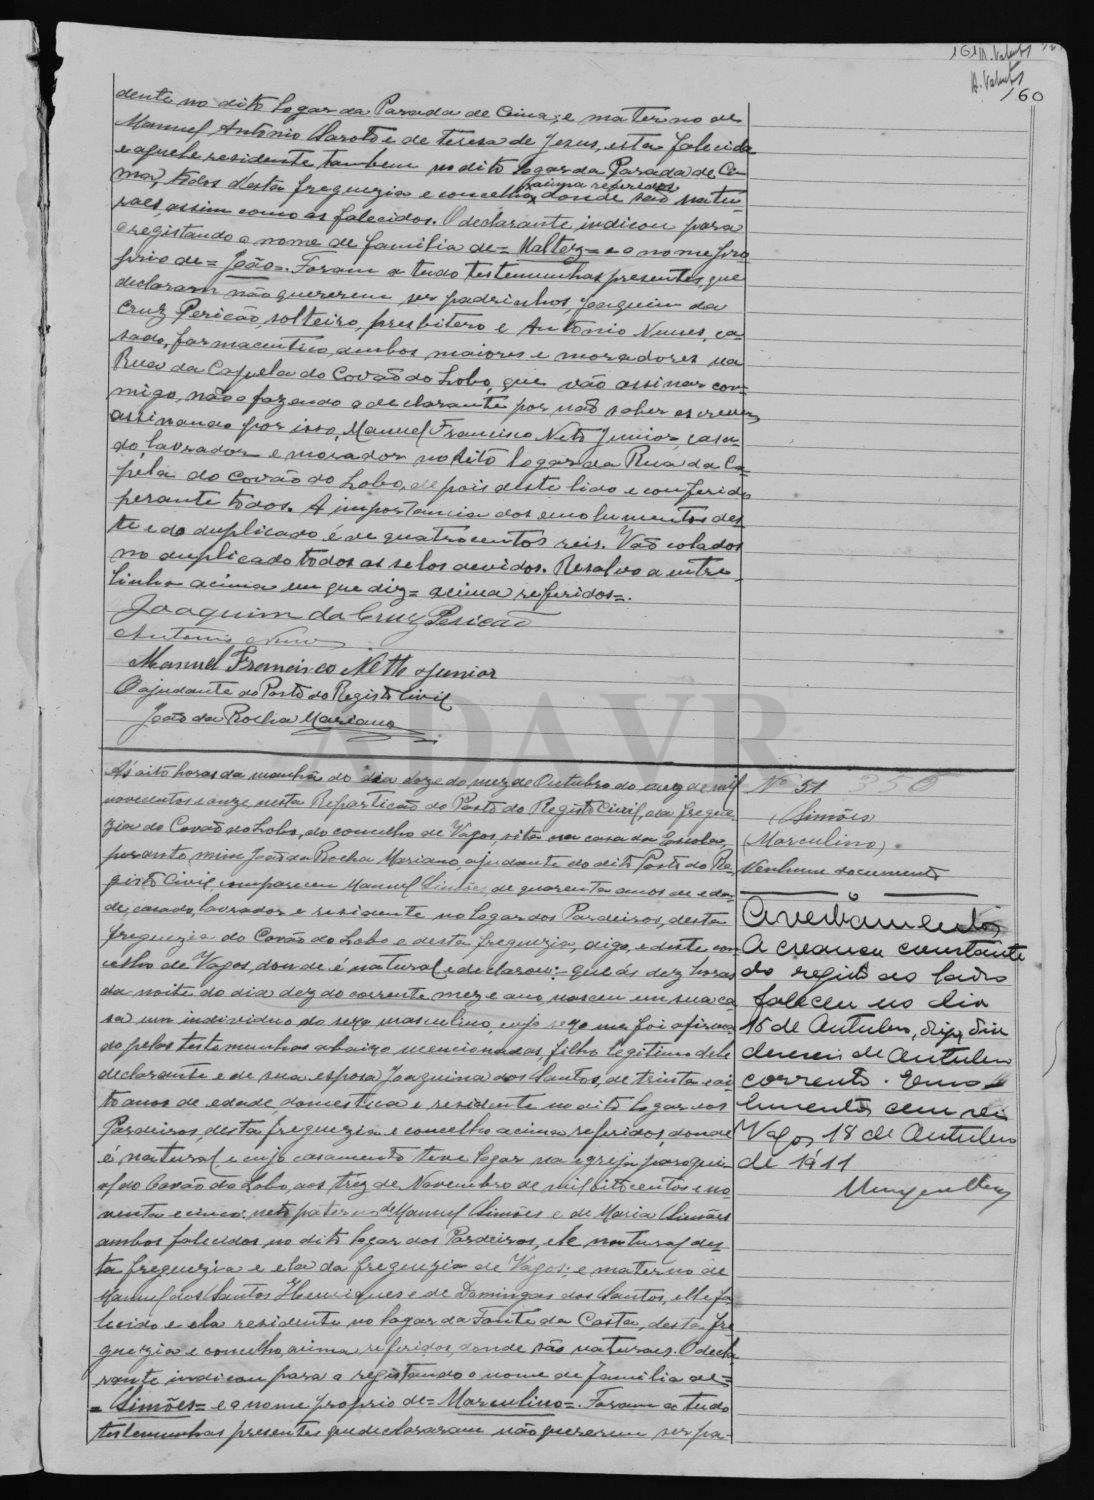 160
dente no dito logar da Parada de Cima, e materno de
Manuel Antonio Maroto e de Teresa de Jesus, esta falecida
e aquele residente tambem no dito logar da Parada de Ci-
ma, todos desta freguezia e concelho acima referidos donde são natu-
raes, assim como os falecidos. O declarante indicou para
o registando o nome de familia de = Maltez = e o nome pro-
prio de = João =. Foram a tudo testemunhas presentes, que
declaram não quererem ser padrinhos, Joaquim da
Cruz Pericão, solteiro, presbitero e Antonio Nunes, ca-
sado, farmaceutico, ambos maiores e moradores na
Rua da Capela do Covão do Lobo, que vão assinar com-
migo, não o fazendo o declarante por não saber escrever,
assinando por isso, Manuel Francisco Neto Junior, casa-
do, lavrador e morador no dito logar da Rua da Ca-
pela do Covão do Lobo, depois deste lido e conferido
perante todos. A importancia dos emolumentos des-
te e do duplicado é de quatrocentos reis. Vão colados
no duplicado todos os selos devidos. Resalvo a entre-
linha acima em que diz = acima referidos =.
Joaquim da Cruz Pericão
Antonio Nunes
Manuel Francisco Netto Junior
O ajudante do Posto do Registo Civil
João da Rocha Mariano
ADAVR
A's oito horas da manhã do dia doze do mez de Outubro do ano de mil
novecentos e onze, nesta Repartição do Posto do Registo Civil, da fregue-
zia do Covão do Lobo, do concelho de Vagos, sita na casa da Escola,
perante mim João da Rocha Mariano, ajudante do dito Posto do Re-
gisto Civil, compareceu Manuel Simões, de quarenta anos de eda-
de, casado, lavrador e residente no logar dos Pardeiros, desta
freguezia do Covão do Lobo e desta freguezia, digo, e deste con-
celho de Vagos, donde é natural e declarou: - que ás dez horas
da noite do dia dez do corrente mez e ano, nasceu em sua ca-
sa um individuo do sexo masculino, cujo sexo me foi afirma-
do pelas testemunhas abaixo mencionadas, filho legitimo dele
declarante e de sua esposa Joaquina dos Santos, de trinta e oi-
to anos de edade, domestica e residente no dito logar dos
Pardeiros, desta freguezia e concelho acima referidos, donde
é natural, e cujo casamento teve logar na egreja paroqui-
al do Covão do Lobo, aos trez de Novembro de mil oitocentos e no-
venta e cinco: neto paterno de Manuel Simões e de Maria Simões
ambos falecidos, no dito logar dos Pardeiros, ele natural des-
ta freguezia e ela da freguezia de Vagos; e materno de
Manuel dos Santos Henriques e de Domingas dos Santos, elle fa-
lecido e ela residente no logar da Fonte da Costa, desta fre-
guezia e concelho, acima referidos, donde são naturaes. O decla-
rante indicou para o registando o nome de familia de =
= Simões = e o nome proprio de = Marculino =. Foram a tudo
testemunhas presentes que declararam não quererem ser pa-
Nº 51 350
(Simões)
(Marculino)
Nenhum documento
Averbamento
A creança constante
do registo ao lado
faleceu no dia
15 de Outubro, digo, dia
dezeseis de Outubro
corrente. Emo-
lumentos cem reis
Vagos 18 de Outubro
de 1911